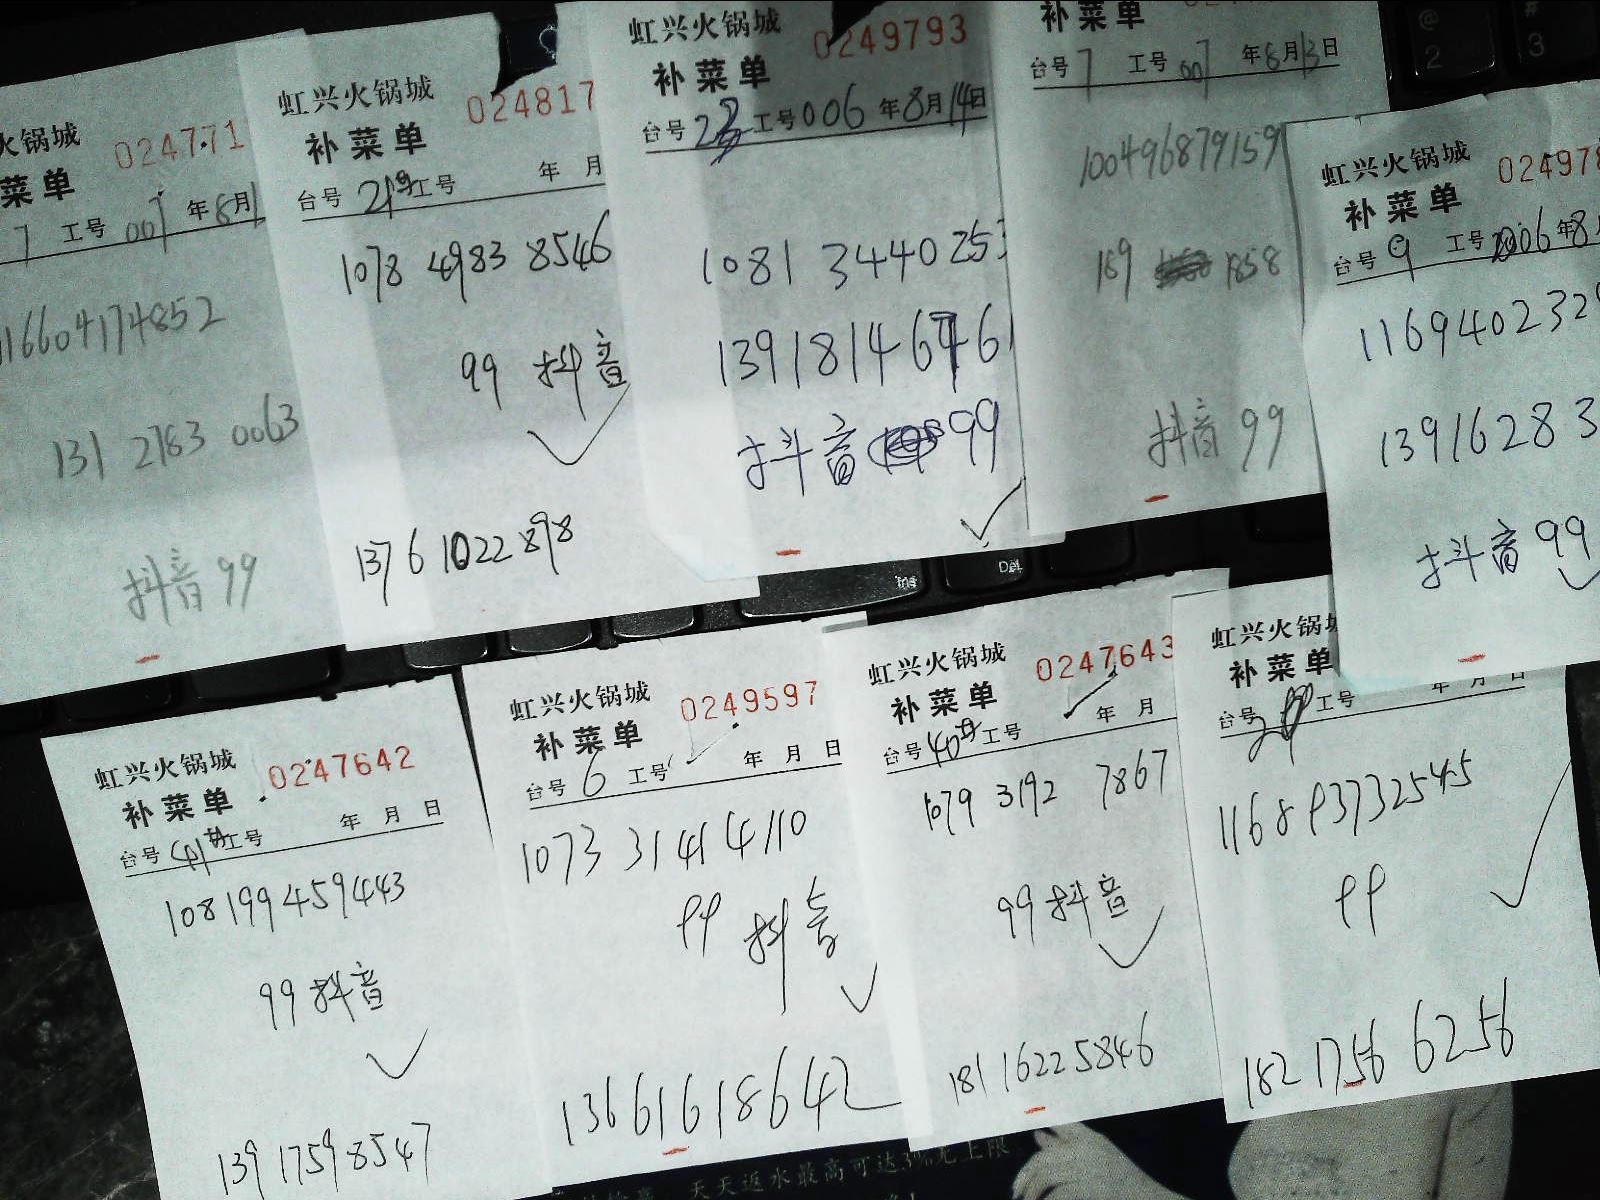 火锅城
024771
菜单
7 工号 007 年8月1
116604174852
131 2783 0063
抖音 99
虹兴火锅城
024817
补菜单
台号 21号 工号 年 月
1078 4983 8546
99 抖音
1376 1022 898
虹兴火锅城
0249793
补菜单
台号 工号 006 年 8月 14日
1081 3440 253
抖音 99
补菜单
台号 7 工号 007 年 8月 13日
100496879159
189 1858
抖音 99
虹兴火锅城
024978
补菜单
台号 9 工号 006 年 8
116940232
13916283
抖音 99
虹兴火锅城
0247642
补菜单
台号 41 工号 年 月 日
108199459443
99 抖音
139 1759 8547
虹兴火锅城
0249597
补菜单
台号 6 工号 年 月 日
1073 3141 4110
99 抖音
13661618642
虹兴火锅城
0247643
补菜单
台号 40 工号 年 月
1079 3192 7867
99 抖音
181 1622 5846
虹兴火锅城
补菜单
台号 工号 年 月 日
1168 93732545
99
182 1756 6256
Ins
Del
@
2
#
3
天天返水最高可达3%无上限